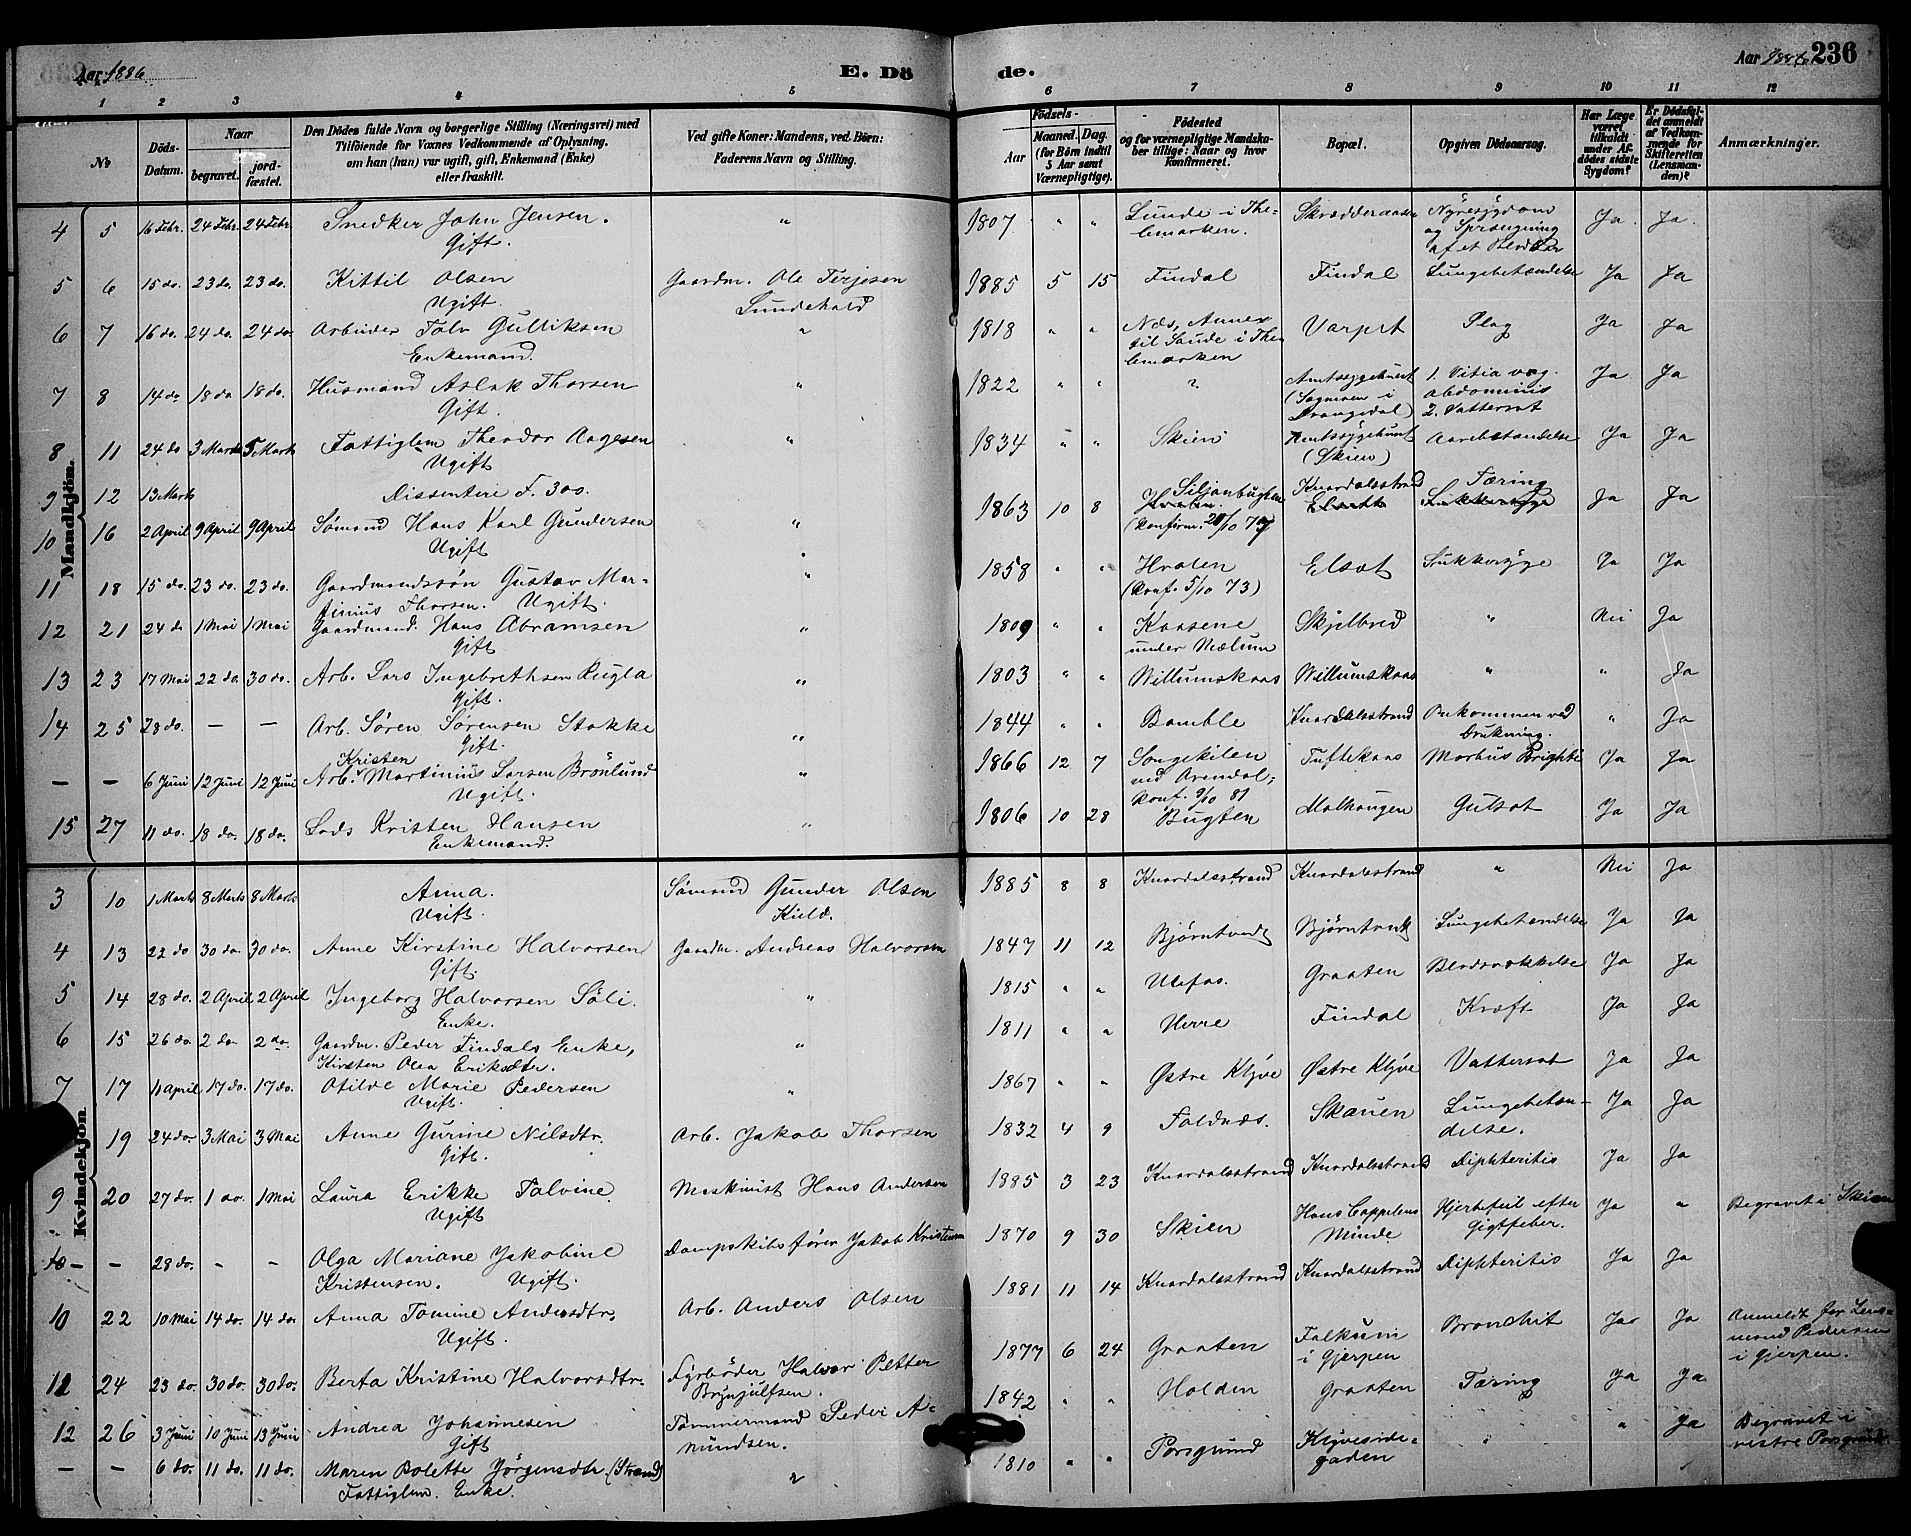 Aar 1886
E. Dö
de.
Aar 1886
236
1 2 3 4 5
6 7 8 9 10 11 12
No
Döds-Datum.
Naar
begravet.
jord-fæstet.
Den Dödes fulde Navn og borgerlige Stilling (Næringsvei) med
Tilföiende for Voxnes Vedkommende af Oplysning,
om han (hun) var ugift, gift, Enkemand (Enke)
eller fraskilt.
Ved gifte Koner: Mandens, ved Börn:
Faderens Navn og Stilling.
Födsels-
Aar
Maaned. Dag.
(for Börn indtil
5 Aar samt
Værnepligtige).
Födested
og for værnepligtige Mandska-
ber tillige: Naar og hvor
konfirmeret.
Bopæl.
Opgiven Dödsaarsag.
Har Læge
været
tilkaldt
under Af-
dödes sidste
Sygdom?
Er Dödsfal-
det anmeldt
af Vedkom-
mende for
Skifteretten
(Lensman-
den)?
Anmærkninger.
Mandkjön.
4 5 16 Febr. 24 Febr. 24 Febr. Snedker John Jensen. Gift. " 1807 " " Lunde i Thelemarken. Skrædderaasen Nyresygdom og Sprængning af et Blodkar Ja Ja
5 6 15 do. 23 do. 23 do. Kittil Olsen Ugift. Gaardm. Ole Terjesen Lundekald 1885 5 15 Findal Findal Lungebetændelse Ja Ja
6 7 16 do. 24 do. 24 do. Arbeider Talv Gulliksen Enkemand. " 1818 " " Næs, Annex til Saude i Thelemarken Varpet Plag Ja Ja
7 8 14 do 18 do 18 do. Husmand Aslak Thorsen Gift. " 1822 " " ? Amtssygehuset (Sagmoen i Drangedal) 1. Vitia vag. abdominis 2. Vattersot Ja Ja
8 11 24 do 3 Marts 5 Marts Fattiglem Theodor Aagesen Ugift " 1834 " " Skien Amtssygehuset (Skien) Aarebetændelse Ja Ja
9 12 13 Marts Dissentere F. 300.
10 16 2 April 9 April 9 April Sømand Hans Karl Gundersen Ugift " 1863 10 8 Siljanbugten (Konfirm. Knardalsstrand Tæring Sukkersyge Ja Ja
11 18 15 do. 23 do. 23 do. Gaardmandssøn Gustav Martinius Thorsen. Ugift. " 1858 " " Hvalen (Konf. 5/10 73) Elsæt Sukkersyge Ja Ja
12 21 24 do 1 Mai 1 Mai Gaardmand. Hans Abramsen Gift " 1809 " " Kaasene under Mælum Skjelbred " Nei Ja
13 23 17 Mai 22 do 30 do. Arb. Lars Ingebrethsen Rugla Gift. " 1803 " " Willumskaas Willumskaas " " Ja
14 25 28 do. — — Arb. Søren Sørensen Stokke Gift. " 1844 " " Bamble Knardalsstrand Omkommen ved Drukning. " Ja
— — 6 Juni 12 Juni 12 Juni Arb. Kristen Martinius Larsen Brönlund Ugift. " 1866 12 7 Songekilen ved Arendal; Konf. 9/10 81 Tuftekaas Morbus Brightii Ja Ja
15 27 11 do. 18 do. 18 do. Lods Kristen Hansen Enkemand. " 1806 10 28 Bugten Molhaugen Gulsot Ja Ja
Kvindekjön.
3 10 1 Marts 8 Marts 8 Marts Anna. Ugift. Sømand Gunder Olsen Kield. 1885 8 8 Knardalsstrand Knardalsstrand " Nei Ja
4 13 22 do 30 do. 30 do. Anne Kirstine Halvorsen Gift. Gaardm. Andreas Halvorsen 1847 11 12 Bjørntvedt Bjørntvedt Lungebetændelse Ja Ja
5 14 28 do. 2 April 2 April Ingeborg Halvorsen Söli. Enke. " 1815 " " Ulefos. Graaten Blodsvækkelse Ja Ja
6 15 26 do. 2 do. 2 do. Gaardm. Peder Findals Enke, Kirsten Olea Eriksdtr. " 1811 " " Herre Findal Kræft Ja Ja
7 17 11 April 17 do. 17 do. Otilde Marie Pedersen Ugift. " 1867 " " Østre Klyve Østre Klyve Vattersot Ja Ja
19 24 do. 3 Mai 3 Mai Anne Gurine Nilsdtr. Gift. Arb. Jakob Thorsen 1832 4 9 Foldnæs. Skauen Lungebetændelse. Ja Ja
9 20 27 do. 1 do. 1 Mai Laura Erikke Talvine Ugift Maskinist Hans Andersen 1885 3 23 Knardalsstrand Knardalsstrand Diphteritis Ja Ja
— — 28 do. — — Olga Mariane Jakobine Kristensen. Ugift. Dampskibsfører Jakob Kristensen 1870 9 30 Skien Hans Cappelens Minde Hjertefeil efter Gigtfeber. Ja " Begravet i Skien
10 22 10 Mai 14 do. 14 do Anna Tomine Andersdtr. Ugift. Arb. Anders Olsen 1881 11 14 Knardalsstrand Knardalsstrand Diphteritis Ja Ja
11 24 23 do. 30 do. 30 do. Berta Kristine Halvorsdtr. Fyrbøder Halvor Petter Brynjulfsen. 1877 6 24 Graaten Falkum i Gjerpen Bronchit Ja Ja Anmeldt for Lensmand Pedersen i Gjerpen.
12 26 3 Juni 10 Juni 13 Juni Andrea Johannesen Gift Tømmermand Peder Amundsen. 1842 " " Holden Graaten Tæring Ja Ja
— — 6 do. 11 do. 11 do. Maren Bolette Jörgensdtr. (Strand) Fattiglem. Enke. " 1810 " " Porsgrund Klyvesidegaden " " Ja Begravet i vestre Porsgrund.